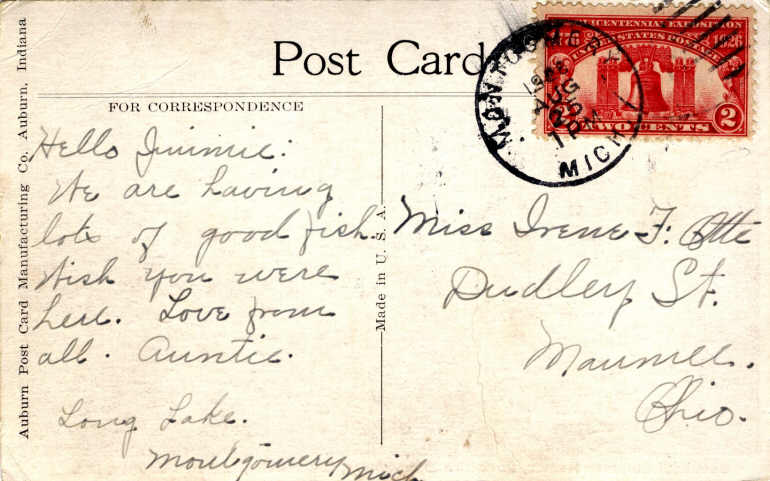 Post Card
FOR CORRESPONDENCE
Auburn Post Card Manufacturing Co. Auburn, Indiana
Hello Jimmie:
We are having
lots of good fish.
Wish you were
here. Love from
all. Auntie.
Long Lake.
Montgomery Mich
Made in U.S.A.
SESQUICENTENNIAL EXPOSITION
1776 1926
UNITED STATES POSTAGE
2 TWO CENTS 2
MONTGOMERY
AUG
25
1 PM
MICH
Miss Irene F. Otte
Dudley St.
Maumee.
Ohio.